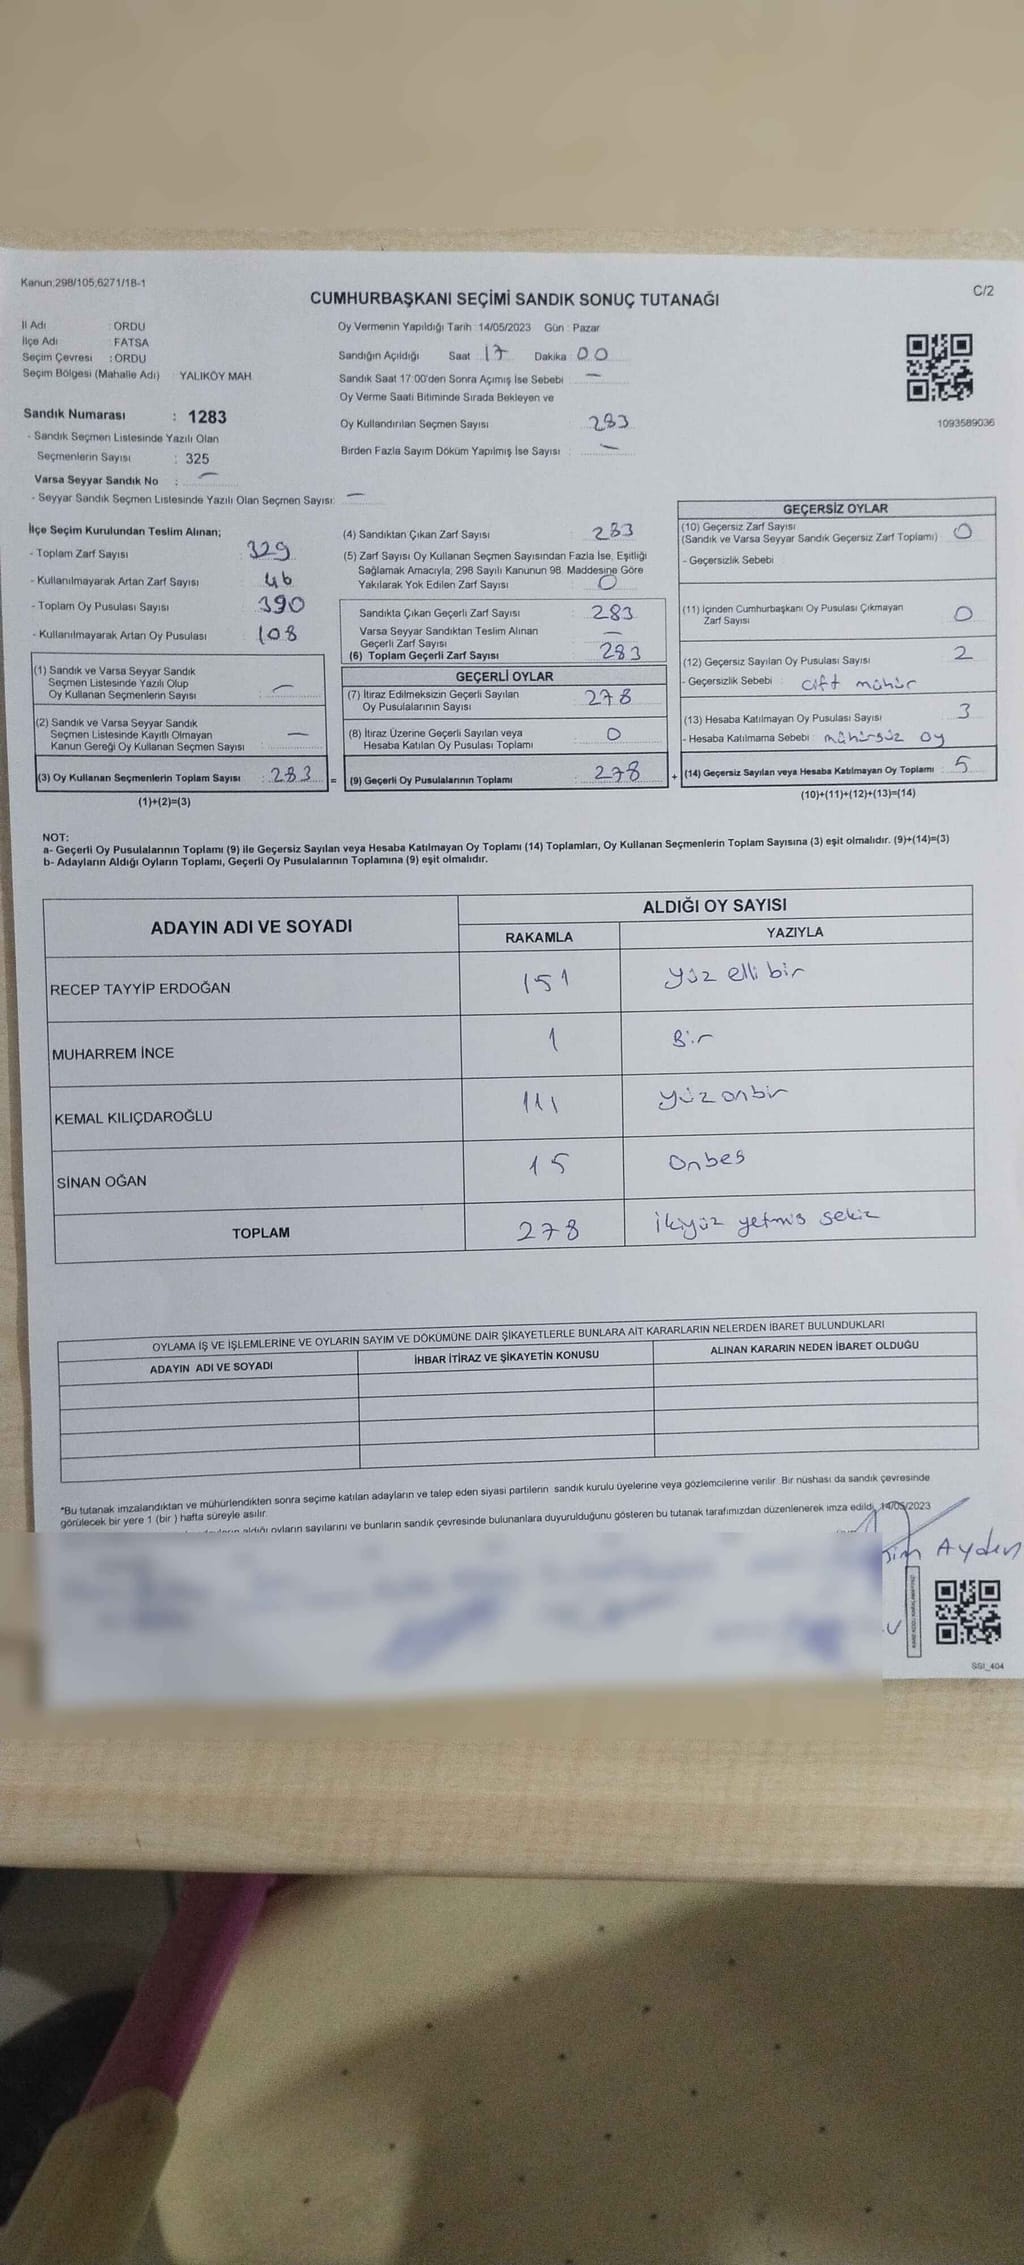 Kanun:298/105,6271/18-1
C/2
CUMHURBAŞKANI SEÇİMİ SANDIK SONUÇ TUTANAĞI
İl Adı : ORDU
İlçe Adı : FATSA
Seçim Çevresi : ORDU
Seçim Bölgesi (Mahalle Adı) : YALIKÖY MAH.
Sandık Numarası : 1283
- Sandık Seçmen Listesinde Yazılı Olan
Seçmenlerin Sayısı : 325
Varsa Seyyar Sandık No : —
- Seyyar Sandık Seçmen Listesinde Yazılı Olan Seçmen Sayısı: —
Oy Vermenin Yapıldığı Tarih : 14/05/2023 Gün : Pazar
Sandığın Açıldığı Saat 17 Dakika 00
Sandık Saat 17:00'den Sonra Açılmış İse Sebebi : —
Oy Verme Saati Bitiminde Sırada Bekleyen ve
Oy Kullandırılan Seçmen Sayısı : 283
Birden Fazla Sayım Döküm Yapılmış İse Sayısı : —
1093589036
İlçe Seçim Kurulundan Teslim Alınan;
- Toplam Zarf Sayısı : 329
- Kullanılmayarak Artan Zarf Sayısı : 46
- Toplam Oy Pusulası Sayısı : 390
- Kullanılmayarak Artan Oy Pusulası : 108
(1) Sandık ve Varsa Seyyar Sandık
Seçmen Listesinde Yazılı Olup
Oy Kullanan Seçmenlerin Sayısı : —
(2) Sandık ve Varsa Seyyar Sandık
Seçmen Listesinde Kayıtlı Olmayan
Kanun Gereği Oy Kullanan Seçmen Sayısı : —
(3) Oy Kullanan Seçmenlerin Toplam Sayısı : 283 =
(1)+(2)=(3)
(4) Sandıktan Çıkan Zarf Sayısı : 283
(5) Zarf Sayısı Oy Kullanan Seçmen Sayısından Fazla İse, Eşitliği
Sağlamak Amacıyla, 298 Sayılı Kanunun 98. Maddesine Göre
Yakılarak Yok Edilen Zarf Sayısı : 0
Sandıkta Çıkan Geçerli Zarf Sayısı : 283
Varsa Seyyar Sandıktan Teslim Alınan
Geçerli Zarf Sayısı : —
(6) Toplam Geçerli Zarf Sayısı : 283
GEÇERLİ OYLAR
(7) İtiraz Edilmeksizin Geçerli Sayılan
Oy Pusulalarının Sayısı : 278
(8) İtiraz Üzerine Geçerli Sayılan veya
Hesaba Katılan Oy Pusulası Toplamı : 0
(9) Geçerli Oy Pusulalarının Toplamı : 278 +
GEÇERSİZ OYLAR
(10) Geçersiz Zarf Sayısı
(Sandık ve Varsa Seyyar Sandık Geçersiz Zarf Toplamı) : 0
- Geçersizlik Sebebi
(11) İçinden Cumhurbaşkanı Oy Pusulası Çıkmayan
Zarf Sayısı : 0
(12) Geçersiz Sayılan Oy Pusulası Sayısı : 2
- Geçersizlik Sebebi : çift mühür
(13) Hesaba Katılmayan Oy Pusulası Sayısı : 3
- Hesaba Katılmama Sebebi : mühürsüz oy
(14) Geçersiz Sayılan veya Hesaba Katılmayan Oy Toplamı : 5
(10)+(11)+(12)+(13)=(14)
NOT:
a- Geçerli Oy Pusulalarının Toplamı (9) ile Geçersiz Sayılan veya Hesaba Katılmayan Oy Toplamı (14) Toplamları, Oy Kullanan Seçmenlerin Toplam Sayısına (3) eşit olmalıdır. (9)+(14)=(3)
b- Adayların Aldığı Oyların Toplamı, Geçerli Oy Pusulalarının Toplamına (9) eşit olmalıdır.
ADAYIN ADI VE SOYADI
ALDIĞI OY SAYISI
RAKAMLA YAZIYLA
RECEP TAYYİP ERDOĞAN 151 yüz elli bir
MUHARREM İNCE 1 Bir
KEMAL KILIÇDAROĞLU 111 yüz onbir
SİNAN OĞAN 15 Onbeş
TOPLAM 278 ikiyüz yetmiş sekiz
OYLAMA İŞ VE İŞLEMLERİNE VE OYLARIN SAYIM VE DÖKÜMÜNE DAİR ŞİKAYETLERLE BUNLARA AİT KARARLARIN NELERDEN İBARET BULUNDUKLARI
ADAYIN ADI VE SOYADI İHBAR İTİRAZ VE ŞİKAYETİN KONUSU ALINAN KARARIN NEDEN İBARET OLDUĞU
*Bu tutanak imzalandıktan ve mühürlendikten sonra seçime katılan adayların ve talep eden siyasi partilerin sandık kurulu üyelerine veya gözlemcilerine verilir. Bir nüshası da sandık çevresinde
görülecek bir yere 1 (bir ) hafta süreyle asılır.
aldığı oyların sayılarını ve bunların sandık çevresinde bulunanlara duyurulduğunu gösteren bu tutanak tarafımızdan düzenlenerek imza edildi. 14/05/2023
Ayden
SGI_404